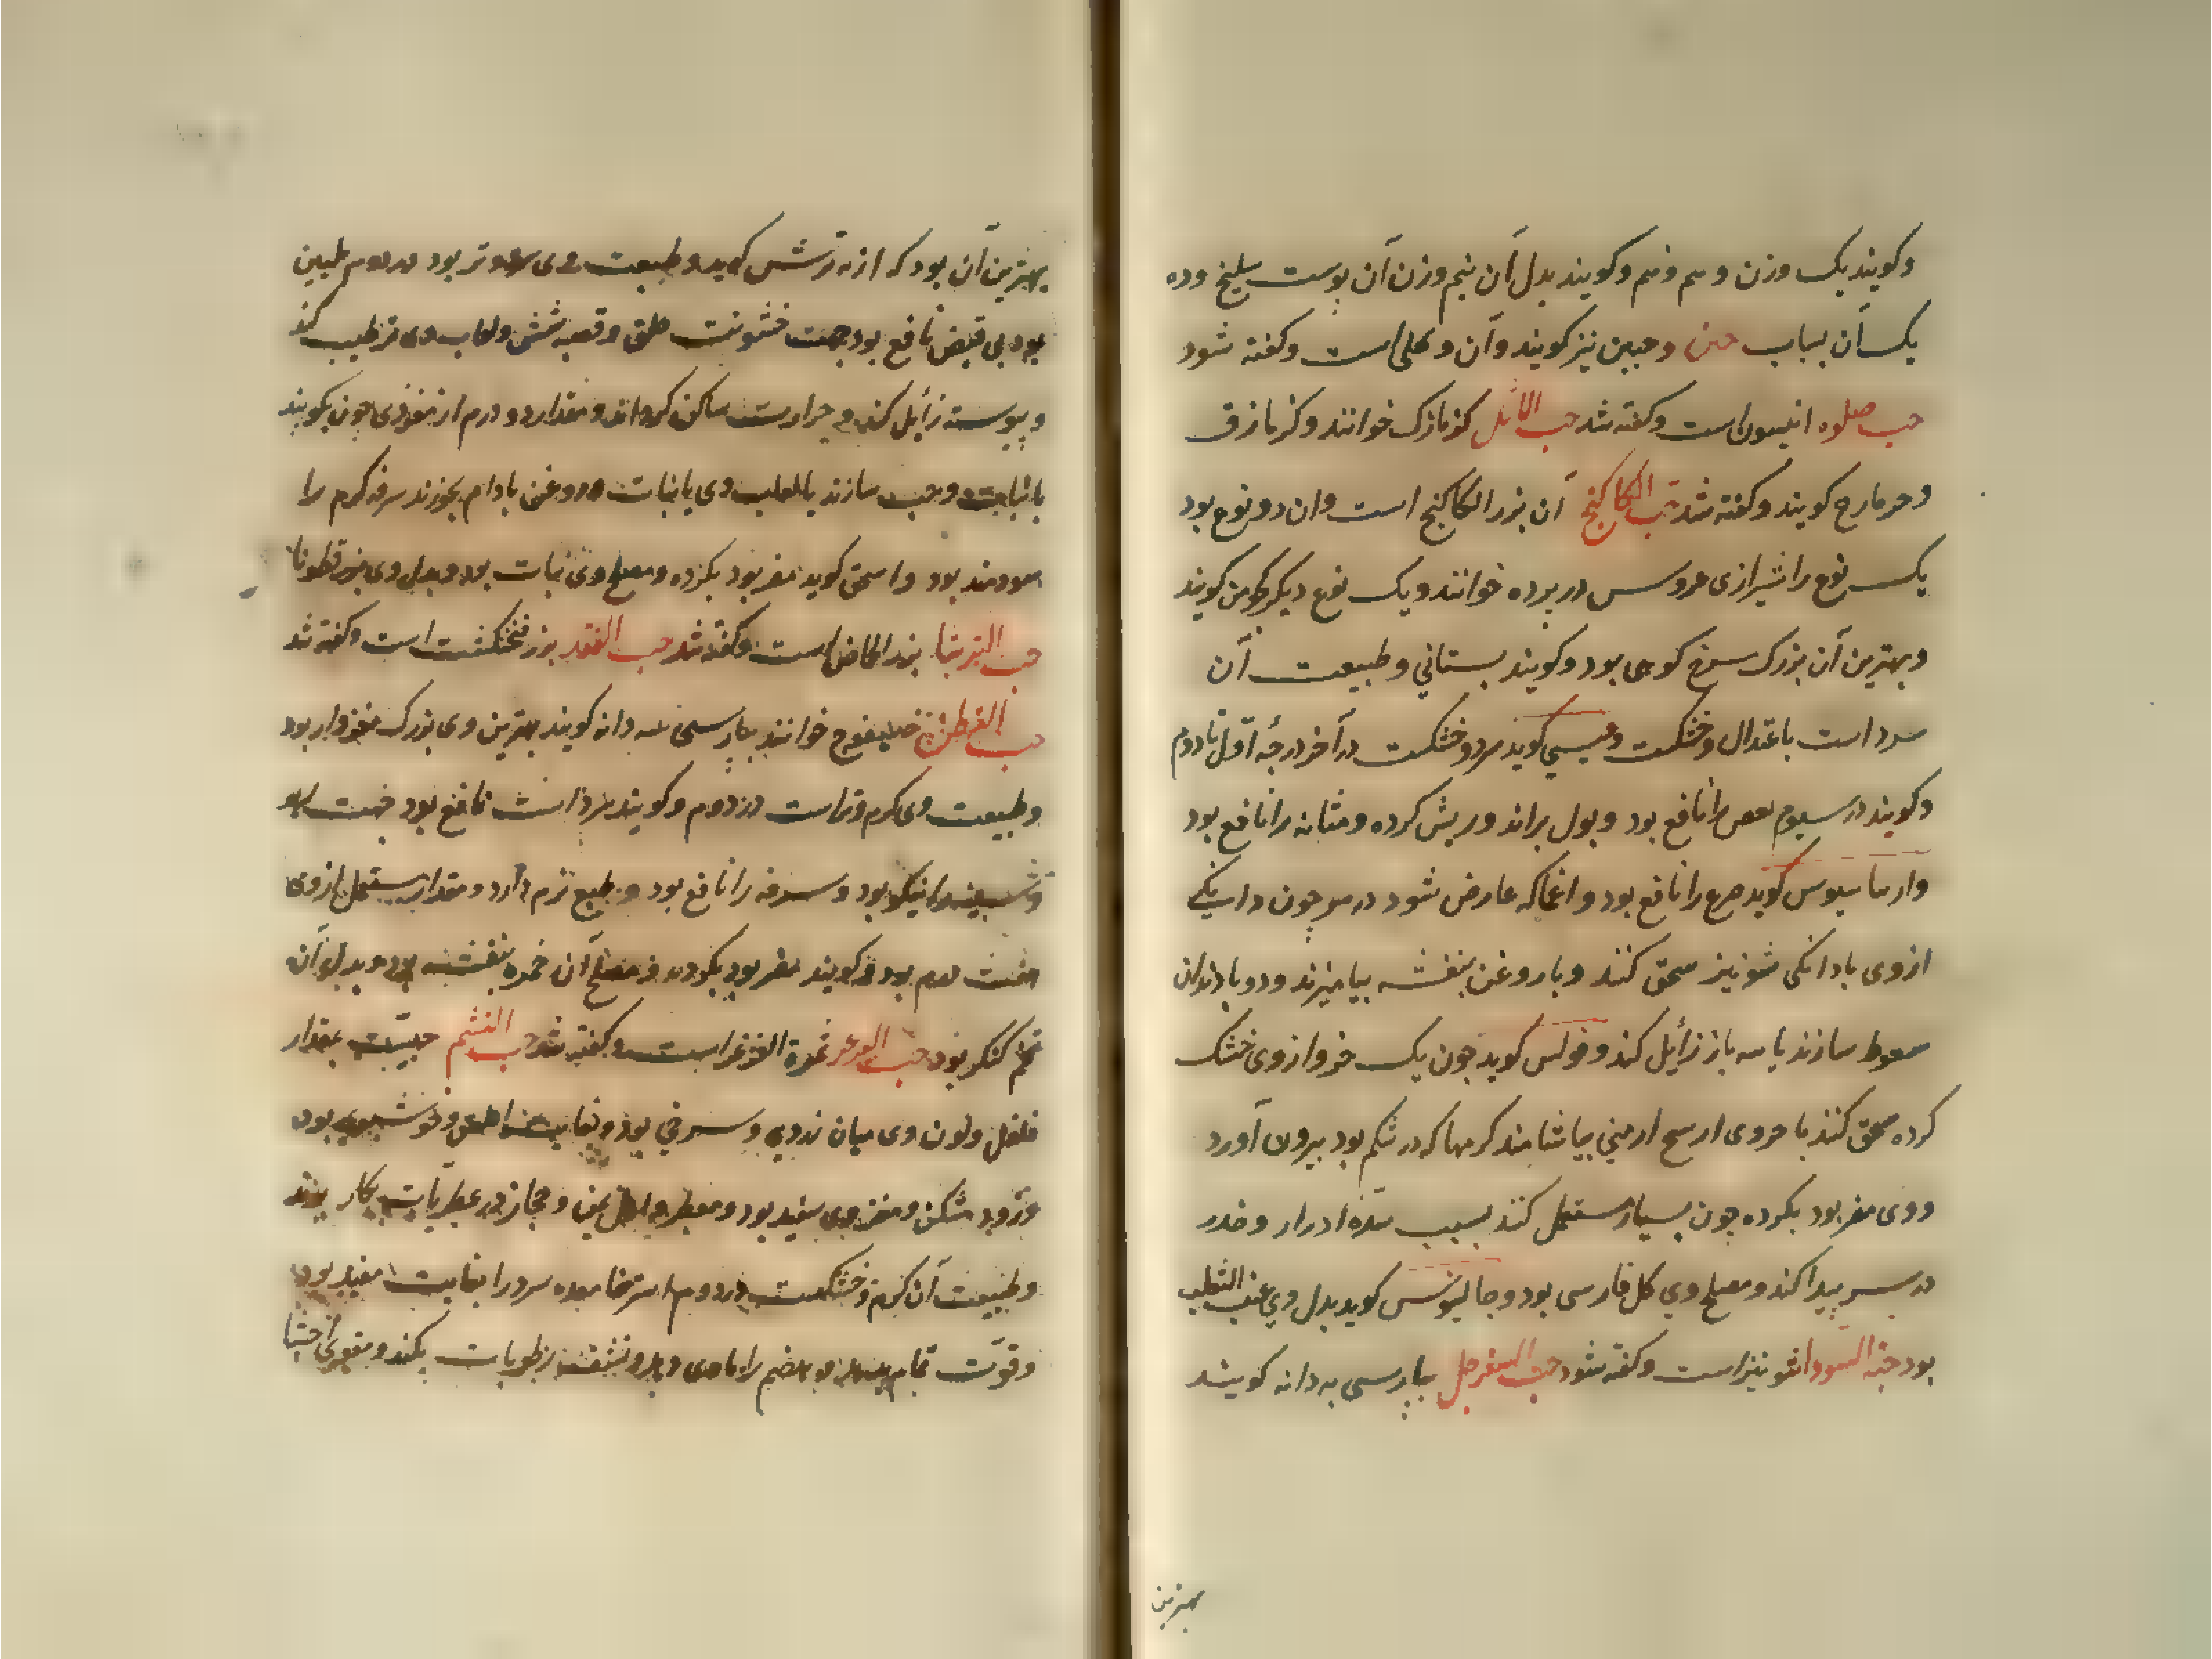 وکویند یک وزن و سم ونیم وکویند بدل آن نیم وزن آن پوست سلیخ وده
یک آن بساب حبن وحبین نیز کویند وآن دفلی است وکفته شود
حب صلوه انیسون است وکفته شد حب الاثل کزمازک خوانند وکزمازق
وحرمارح کویند وکفته شد حب الکاکنج آن بزر الکاکنج است وان دو نوع بود
یک نوع را شیرازی عروس در پرده خوانند ویک نوع دیکر کوین کویند
وبهترین آن بزرک سرخ کوهی بود وکویند بستانی وطبیعت آن
سرد است باعتدال وخشکست وعیسی کوید سرد وخشکست در آخر درجهٔ اول تا دوم
وکویند در سیوم مغص را نافع بود وبول براند وریش کرده ومثانه را نافع بود
وارماسیوس کوید صرع را نافع بود وانجا که عارض شود در سر چون دانکی
ازوی با دانکی شونیز سحق کنند وبا روغن بنفشه بیامیزند ودو بامداد
سعوط سازند یا سه بار زایل کند وفولس کوید چون یک جزو ازوی خشک
کرده سحق کنند با جزوی ارسح ارمنی بیاشامند کرمها که در شکم بود بیرون آورد
ووی مضر بود بکرده چون بسیار مستعمل کنند بسبب شدة ادرار وخدر
در سر پیدا کند ومصلح وی کل فارسی بود وجالینوس کوید بدل وی عنب الثعلب
بود حبة السودا شونیز است وکفته شود حب السفرجل بپارسی به دانه کویند
بهترین
بهترین آن بود که از به ترش کیرند وطبیعت وی سرد وتر بود در دوم ملین
بود بی قبض نافع بود جهت خشونت حلق وقصبه شش ولعاب وی ترطیب کند
وپیوسته زایل کند وحرارت ساکن کرداند ومقدار دو درم از مغز وی چون بکوبند
با نبات وحب سازند یا لعاب وی با نبات وروغن بادام بخورند سرفه کرم را
سودمند بود واسحق کوید مضر بود بکرده ومصلح وی نبات بود وبدل وی بزرقطونا
حب الزیبثا بزر الحاض است وکفته شد حب الفقد بزر فنجنکشت است وکفته شد
حب القطن خیسفوج خوانند بپارسی پنبه دانه کویند بهترین وی بزرک مغزدار بود
وطبیعت وی کرم وتر است در دوم وکویند سرد است نافع بود جهت
وسینه را نیکو بود وسرفه را نافع بود وطبع نرم دارد ومقدار مستعمل ازوی
هشت درم بود وکویند مضر بود بکرده ومصلح آن خمره بنفشه بود وبدل آن
تخم کنکر بود حب العرعر ثمرة العرعر است وکفته شد حب النشم حبیست بمقدار
فلفل ولون وی میان زردی وسرخی بود وبغایت املس وخوشبوی بود
وزود شکن ومغز وی سفید بود ومعطر واهل یمن وحجاز در عطریات بکار برند
وطبیعت آن کرم وخشکست در دوم استرخا معده سرد را بغایت مفید بود
وقوت تمام بدهد وهضم را یاری دهد ونشف رطوبات بکند ومقوی احشا